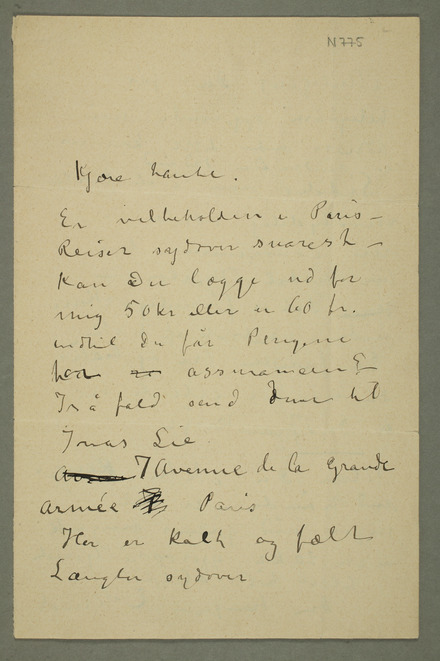 N 775
Kjære tante.
Er velbeholden i Paris –
Reiser sydover snarest –
Kan Du lægge ud for
mig 50 kr eller en 60 fr.
indtil du får Pengene
assurancen
I så fald send dem til
Jonas Lie
7 Avenue de la Grande
armée Paris
Her er kalt og fælt
Længter sydover